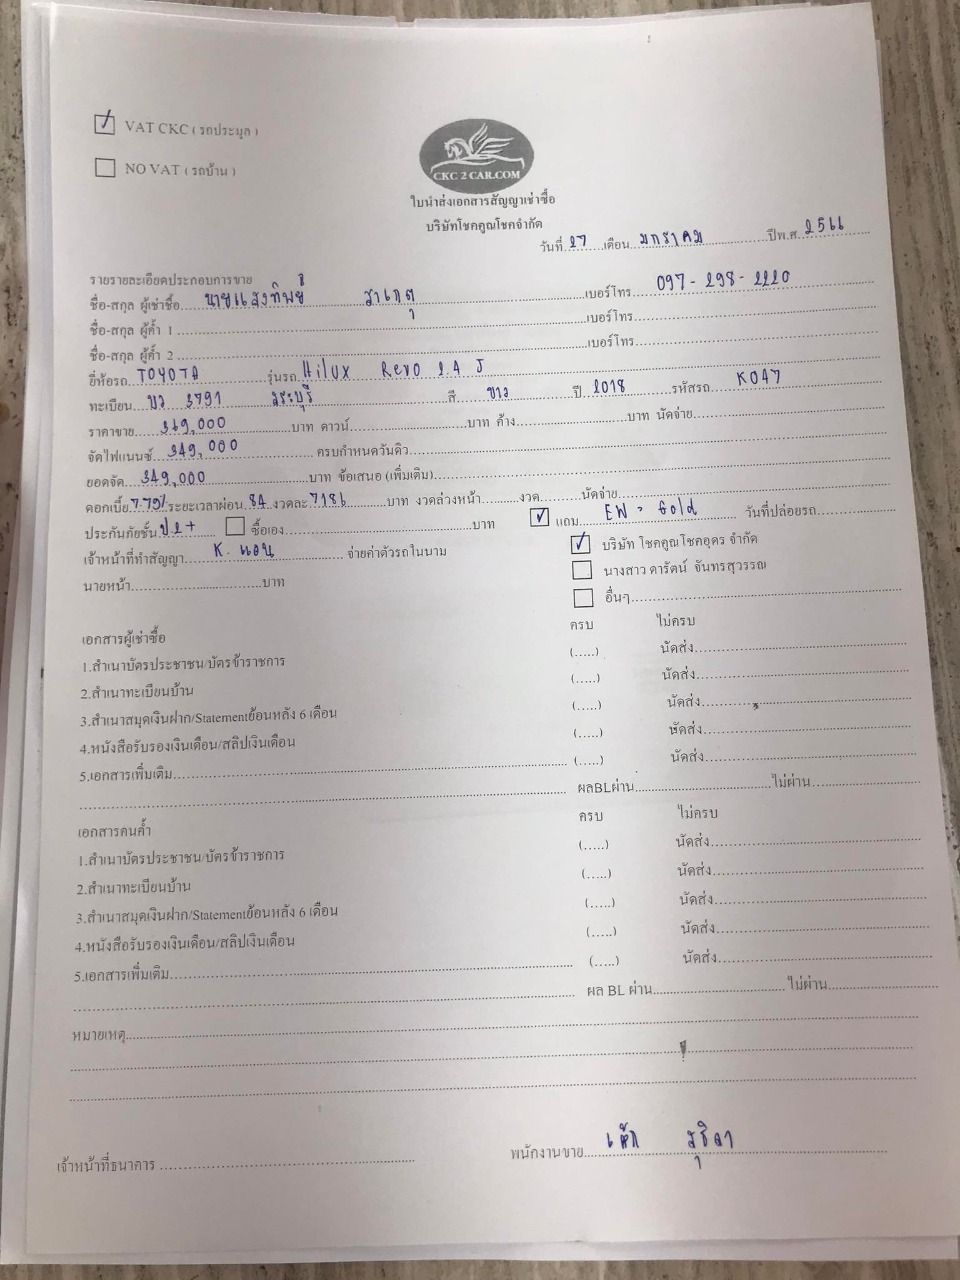 VAT CKC ( รถประมูล )
NO VAT ( รถบ้าน )
CKC 2 CAR.COM
ใบนำส่งเอกสารสัญญาเช่าซื้อ
บริษัทโชคคูณโชคจำกัด
วันที่ 27 เดือน มกราคม ปีพ.ศ. 2566
รายรายละเอียดประกอบการขาย
ชื่อ-สกุล ผู้เช่าซื้อ นายแสงทิพย์ สาเกตุ เบอร์โทร 097-298-2220
ชื่อ-สกุล ผู้ค้ำ 1 เบอร์โทร
ชื่อ-สกุล ผู้ค้ำ 2 เบอร์โทร
ยี่ห้อรถ TOYOTA รุ่นรถ Hilux Revo 2.4 J
ทะเบียน บว 3791 สระบุรี สี ขาว ปี 2018 รหัสรถ K047
ราคาขาย 369,000 บาท ดาวน์ บาท ค้าง บาท นัดจ่าย
จัดไฟแนนซ์ 349,000 ครบกำหนดวันดิว
ยอดจัด 349,000 บาท ข้อเสนอ (เพิ่มเติม)
ดอกเบี้ย 7.79% ระยะเวลาผ่อน 84 งวดละ 7186 บาท งวดล่วงหน้า งวด นัดจ่าย
ประกันภัยชั้น ป.2+ ซื้อเอง บาท แถม EW = Gold วันที่ปล่อยรถ
เจ้าหน้าที่ทำสัญญา K. แอน จ่ายค่าตัวรถในนาม บริษัท โชคคูณโชคอุดร จำกัด
นายหน้า บาท นางสาว ดารัตน์ จันทรสุวรรณ
อื่นๆ
เอกสารผู้เช่าซื้อ ครบ ไม่ครบ
1.สำเนาบัตรประชาชน/บัตรข้าราชการ (.....) นัดส่ง
2.สำเนาทะเบียนบ้าน (.....) นัดส่ง
3.สำเนาสมุดเงินฝาก/Statementย้อนหลัง 6 เดือน (.....) นัดส่ง
4.หนังสือรับรองเงินเดือน/สลิปเงินเดือน (.....) นัดส่ง
5.เอกสารเพิ่มเติม (.....) นัดส่ง
ผลBLผ่าน ไม่ผ่าน
เอกสารคนค้ำ ครบ ไม่ครบ
1.สำเนาบัตรประชาชน/บัตรข้าราชการ (.....) นัดส่ง
2.สำเนาทะเบียนบ้าน (.....) นัดส่ง
3.สำเนาสมุดเงินฝาก/Statementย้อนหลัง 6 เดือน (.....) นัดส่ง
4.หนังสือรับรองเงินเดือน/สลิปเงินเดือน (.....) นัดส่ง
5.เอกสารเพิ่มเติม (.....) นัดส่ง
ผล BL ผ่าน ไม่ผ่าน
หมายเหตุ
เจ้าหน้าที่ธนาคาร พนักงานขาย